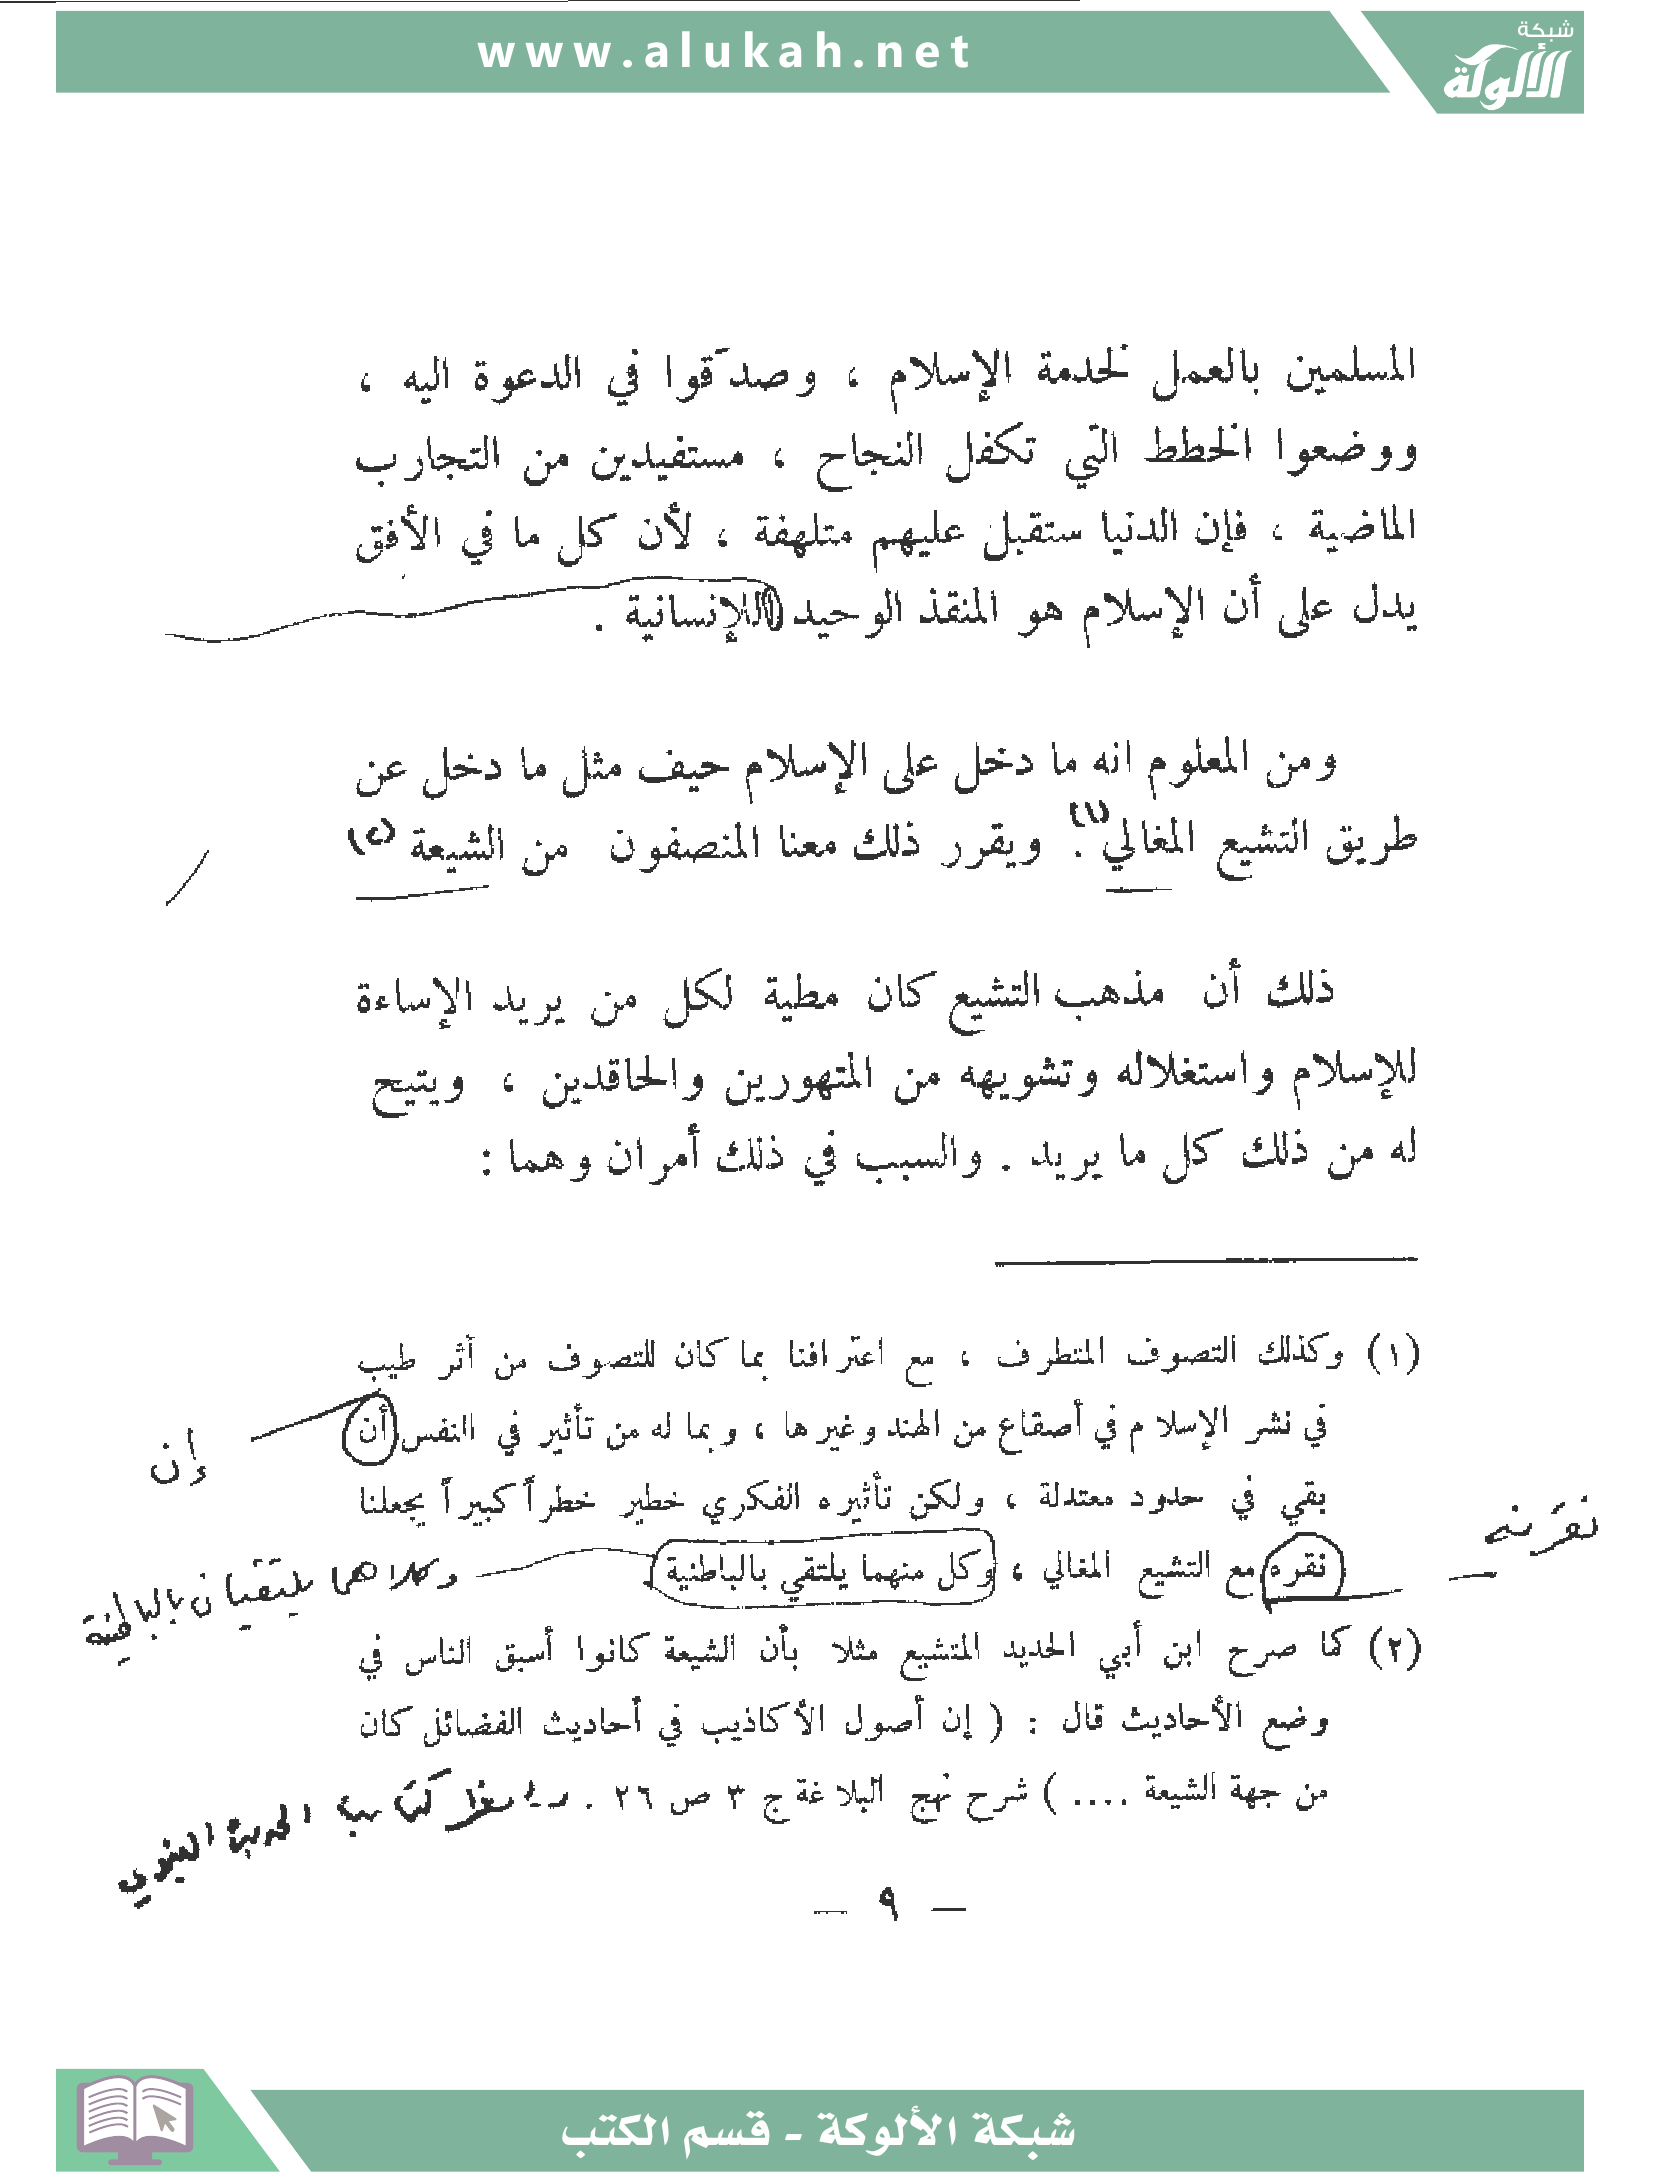 www.alukah.net
شبكة
الألوكة
المسلمين بالعمل لخدمة الإسلام ، وصدّقوا في الدعوة اليه ،
ووضعوا الخطط التي تكفل النجاح ، مستفيدين من التجارب
الماضية ، فإن الدنيا ستقبل عليهم متلهفة ، لأن كل ما في الأفق
يدل على أن الإسلام هو المنقذ الوحيد للإنسانية .
ومن المعلوم انه ما دخل على الإسلام حيف مثل ما دخل عن
طريق التشيع المغالي (١) . ويقرر ذلك معنا المنصفون من الشيعة (٢)
ذلك أن مذهب التشيع كان مطية لكل من يريد الإساءة
للإسلام واستغلاله وتشويهه من المتهورين والحاقدين ، ويتيح
له من ذلك كل ما يريد . والسبب في ذلك أمران وهما :
(١) وكذلك التصوف المتطرف ، مع اعترافنا بما كان للتصوف من أثر طيب
في نشر الإسلام في أصقاع من الهند وغيرها ، وبما له من تأثير في النفس أن
إن
بقي في حدود معتدلة ، ولكن تأثيره الفكري خطير خطراً كبيراً يجعلنا
نقره مع التشيع المغالي ، وكل منهما يلتقي بالباطنية
نقرنه
وكلاهما يلتقيان بالباطنية
(٢) كما صرح ابن أبي الحديد المتشيع مثلا بأن الشيعة كانوا أسبق الناس في
وضع الأحاديث قال : ( إن أصول الأكاذيب في أحاديث الفضائل كان
من جهة الشيعة .... ) شرح نهج البلاغة ج ٣ ص ٢٦ . كتاب الحديث النبوي
— ٩ —
شبكة الألوكة - قسم الكتب